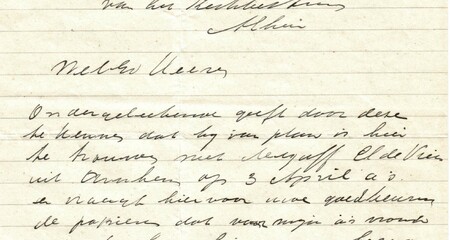 van het Kerkbestuur
Alhier
WelEd Heeren
Ondergeteekende geeft door deze
te kennen dat hij van plan is hier
te trouwen met Mejuff El de Vries
uit Arnhem op 3 April a.s
en vraagt hiervoor uwe goedkeuren
de papieren dat voor mijn is